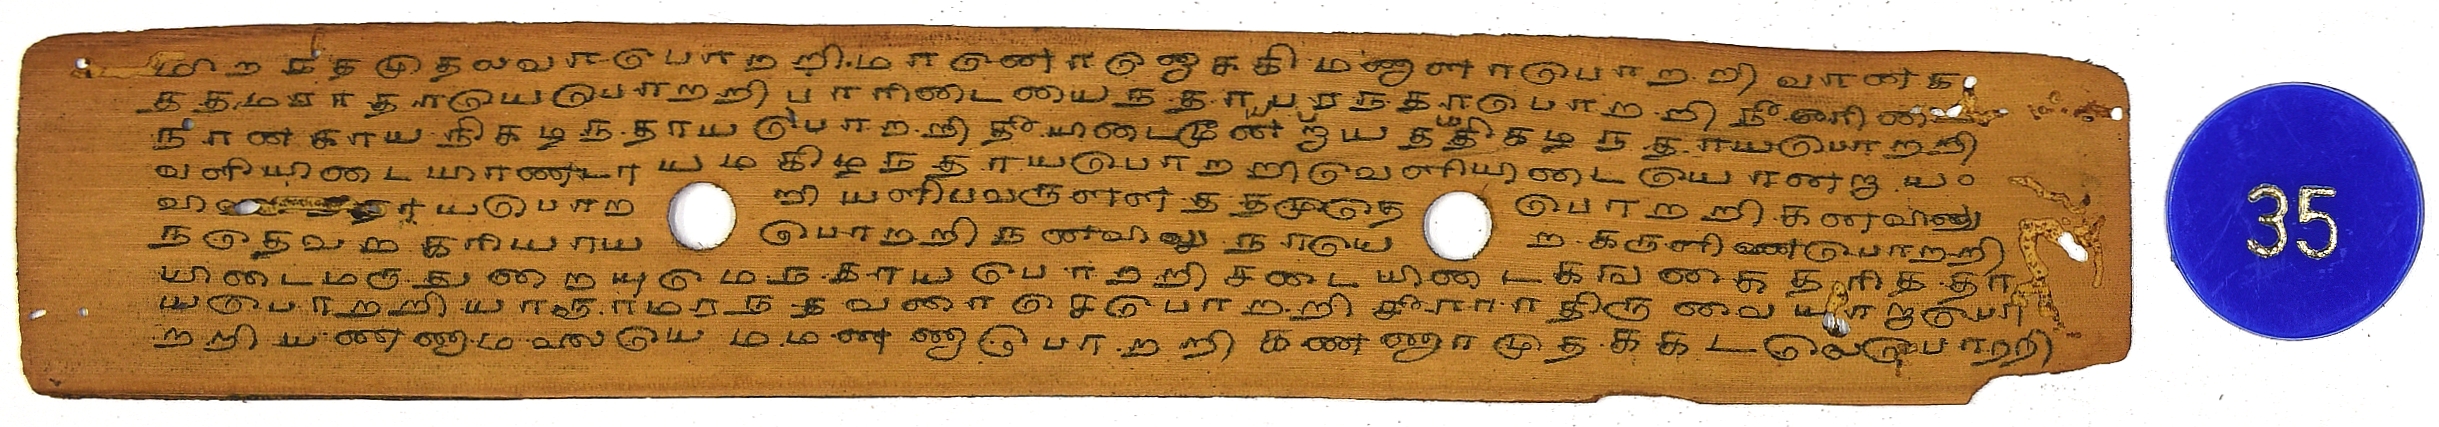 மிறநத முதலவா பொறறி மானொர நொககி மணாளா பொறறி வானக
தத மரர தாயெ பொறறி பாரிடை யைநதாயபரநதாய பொறறி நீரிடை
நானகாய நிகழநதாய பொறறி தீயிடை மூனறாயததிகழநதாய பொறறி
வளியிடை யிரணடாய மகிழநதாய பொறறி வெளியிடை யொனறாய
வி தாய பொறறி யளிபவருளளததமுதெ பொறறி கனவிலு
நதெவரகரியாய பொறறி நனவிலு நாயெறகருளினை பொறறி
யிடைமருதுறையு மெநதாய பொறறி சடையிடைகஙகை தரிததா
ய பொறறி யாரூரமரநத வரசெ பொறறி சீரார திருவையாறா பொ
றறி யணணாமலையெம மணணா பொறறி கணணாரமுதககடலெ பொறறி
35